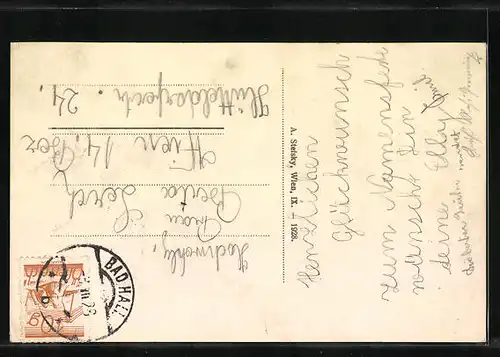 Hochwohlg.
Frau
Berta
Lörch
Wien 14. Bez
Hütteldorferstr. 24.
A. Stefsky, Wien, IX. — 1928.
Herzlichen
Glückwunsch
zum Namensfeste
wünscht Dir
deine Elly
BAD HALL